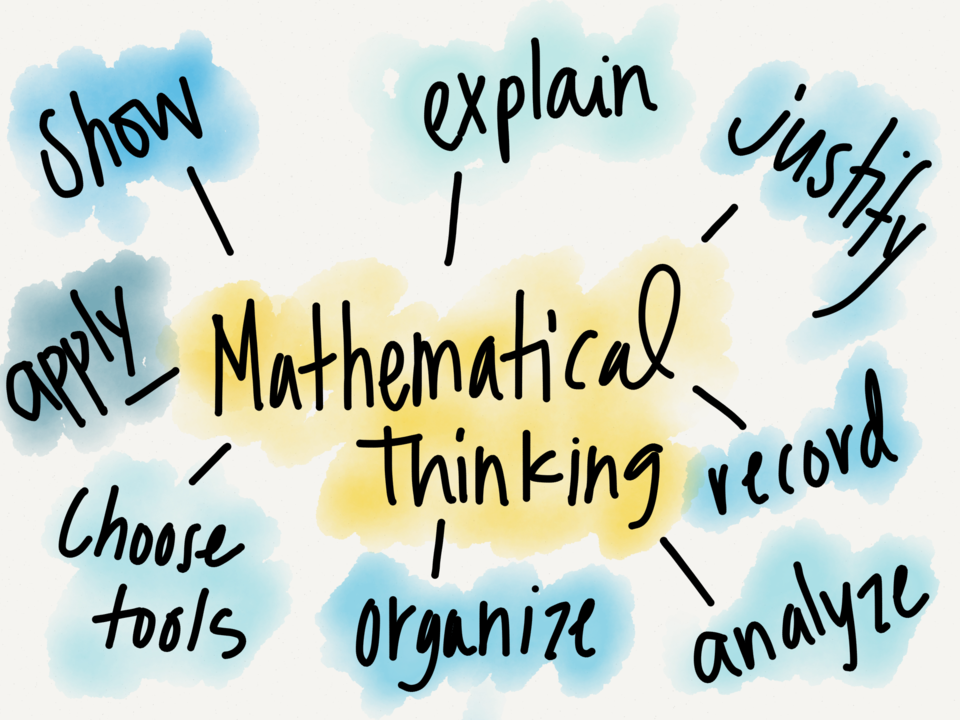 Show
explain
justify
apply
Mathematical
Thinking
record
Choose
tools
organize
analyze